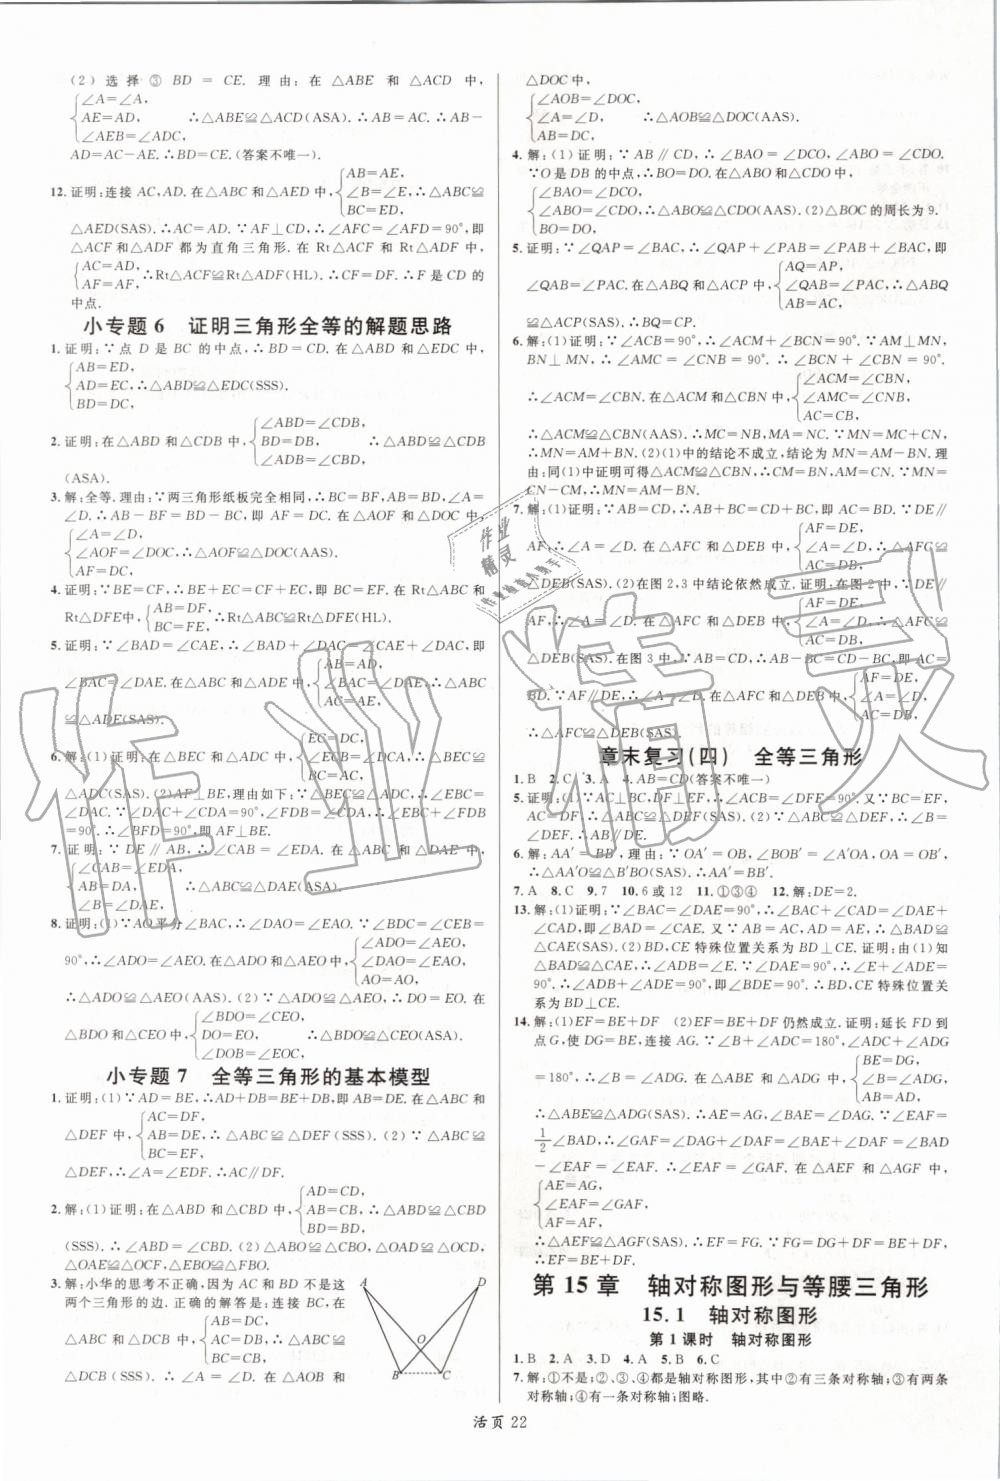 (2) 选择 ③ BD = CE. 理由: 在 △ABE 和 △ACD 中,
∠A=∠A,
AE=AD, ∴△ABE≌△ACD(ASA). ∴AB=AC. ∴AB-
∠AEB=∠ADC,
AD=AC-AE. ∴BD=CE. (答案不唯一).
AB=AE,
12. 证明:连接 AC,AD. 在△ABC 和△AED 中, ∠B=∠E, ∴△ABC≌
BC=ED,
△AED(SAS). ∴AC=AD. ∵AF⊥CD, ∴∠AFC=∠AFD=90°,即
△ACF 和△ADF 都为直角三角形. 在 Rt△ACF 和 Rt△ADF 中,
AC=AD,
∴Rt△ACF≌Rt△ADF(HL). ∴CF=DF. ∴F 是 CD 的
AF=AF,
中点.
小专题 6 证明三角形全等的解题思路
1. 证明:∵点 D 是 BC 的中点,∴BD=CD. 在△ABD 和△EDC 中,
AB=ED,
AD=EC, ∴△ABD≌△EDC(SSS).
BD=DC,
∠ABD=∠CDB,
2. 证明:在△ABD 和△CDB 中, BD=DB, ∴△ABD≌△CDB
∠ADB=∠CBD,
(ASA).
3. 解:全等. 理由:∵两三角形纸板完全相同,∴BC=BF,AB=BD,∠A=
∠D. ∴AB-BF=BD-BC,即 AF=DC. 在△AOF 和△DOC 中,
∠A=∠D,
∠AOF=∠DOC, ∴△AOF≌△DOC(AAS).
AF=DC,
4. 证明:∵BE=CF,∴BE+EC=CF+EC,即 BC=FE. 在 Rt△ABC 和
Rt△DFE中, AB=DF, ∴Rt△ABC≌Rt△DFE(HL).
BC=FE,
5. 证明:∵∠BAD=∠CAE,∴∠BAD+∠DAC=∠CAE+∠DAC,即
AB=AD,
∠BAC=∠DAE. 在△ABC 和△ADE 中, ∠BAC=∠DAE, ∴△ABC
AC=AE,
≌△ADE(SAS).
EC=DC,
6. 解:(1)证明:在△BEC 和△ADC 中,
△ADC(SAS). (2)AF⊥BE,理由如下:∵△BEC≌△ADC,∴∠EBC=
∠DFB=90°,即 AF⊥BE.
7. 证明:∵DE∥AB,∴∠CAB=∠EDA. 在△ABC 和△DAE 中,
∠CAB=∠EDA,
AB=DA, ∴△ABC≌△DAE(ASA).
8. 证明:(1)∵AO平分∠BAC,∴∠DAO=∠EAO. ∵∠BDC=∠CEB=
∠ADO=∠AEO,
90°,∴∠ADO=∠AEO. 在△ADO 和△AEO 中, ∠DAO=∠EAO,
AO=AO,
∴△ADO≌△AEO(AAS). (2)∵△ADO≌△AEO,∴DO=EO. 在
∠BDO=∠CEO,
△BDO 和△CEO 中, DO=EO, ∴△BDO≌△CEO(ASA).
∠DOB=∠EOC,
小专题 7 全等三角形的基本模型
1. 证明:(1)∵AD=BE,∴AD+DB=BE+DB,即 AB=DE. 在△ABC 和
AC=DF,
△DEF 中, AB=DE, ∴△ABC≌△DEF(SSS). (2)∵△ABC≌
BC=EF,
△DEF,∴∠A=∠EDF. ∴AC∥DF.
AD=CD,
2. 解:(1)证明:在△ABD 和△CBD 中, AB=CB, ∴△ABD≌△CBD
BD=BD,
(SSS). ∴∠ABD=∠CBD. (2)△ABO≌△CBO,△OAD≌△OCD,
△OAE≌△OCF,△OBE≌△OBF.
3. 解:小华的思考不正确,因为 AC 和 BD 不是这
两个三角形的边. 正确的解答是:连接 BC,在
AB=DC,
△ABC 和△DCB 中, AC=DB, ∴△ABC≌
BC=CB,
△DCB(SSS). ∴∠A=∠D. 在△AOB 和
A D
O
B C
△DOC 中,
∠AOB=∠DOC,
∠A=∠D, ∴△AOB≌△DOC(AAS).
AB=DC,
4. 解:(1)证明:∵AB∥CD,∴∠BAO=∠DCO,∠ABO=∠CDO.
∵O是 DB 的中点,∴BO=DO. 在△ABO 和△CDO 中,
∠BAO=∠DCO,
∠ABO=∠CDO, ∴△ABO≌△CDO(AAS). (2)△BOC 的周长为 9.
BO=DO,
5. 证明:∵∠QAP=∠BAC,∴∠QAP+∠PAB=∠PAB+∠BAC,即
AQ=AP,
∠QAB=∠PAC. 在△ABQ 和△ACP 中, ∠QAB=∠PAC, ∴△ABQ
AB=AC,
≌△ACP(SAS). ∴BQ=CP.
6. 解:(1)证明:∵∠ACB=90°,∴∠ACM+∠BCN=90°. ∵AM⊥MN,
BN⊥MN, ∴∠AMC=∠CNB=90°. ∴∠BCN+∠CBN=90°.
∠ACM=∠CBN,
∴∠ACM=∠CBN. 在△ACM 和△CBN 中, ∠AMC=∠CNB,
AC=CB,
∴△ACM≌△CBN(AAS). ∴MC=NB,MA=NC. ∵MN=MC+CN,
∴MN=AM+BN. (2)(1)中的结论不成立,结论为 MN=AM-BN. 理
由:同(1)中证明可得△ACM≌△CBN,∴CM=BN,AM=CN. ∵MN=
CN-CM,∴MN=AM-BN.
7. 解:(1)证明:∵AB=CD,∴AB+BC=CD+BC,即 AC=DB. ∵AF∥DE,
AF=DE,
∴∠A=∠D. 在△AFC 和△DEB 中, ∠A=∠D, ∴△AFC≌
AC=DB,
△DEB(SAS). (2)在图 2,3 中结论依然成立.
AF=DE,
AF, ∴∠A=∠D. 在△AFC 和△DEB 中, ∠A=∠D, ∴△AFC≌
AC=DB,
△DEB(SAS). 在图 3 中,∵AB=CD,
AF=DE,
BD. ∵AF∥DE,∴∠A=∠D. 在△AFC 和△DEB 中, ∠A=∠D,
AC=DB,
∴△AFC≌△DEB(SAS).
章末复习(四) 全等三角形
1. B 2. C 3. A 4. AB=CD(答案不唯一)
5. 证明:(1)∵AC⊥BC,DF⊥EF,∴∠ACB=∠DFE=90°. 又∵BC=EF,
AC=DF,∴△ABC≌△DEF(SAS). (2)∵△ABC≌△DEF,∴∠ABC=
∠DEF. ∴AB∥DE.
6. 解:AA′=BB′,理由:∵OA′=OB,∠BOB′=∠A′OA,OA=OB′,
∴△A′OA≌△B′BO(SAS). ∴AA′=BB′.
7. A 8. C 9. 7 10. 6 或 12 11. ①③④ 12. 解:DE=2.
13. 解:(1)证明:∵∠BAC=∠DAE=90°,∴∠BAC+∠CAD=∠DAE+
∠CAD,即∠BAD=∠CAE. 又∵AB=AC,AD=AE,∴△BAD≌
△CAE(SAS). (2)BD,CE 特殊位置关系为 BD⊥CE. 证明:由(1)知
△BAD≌△CAE,∴∠ADB=∠E. ∵∠DAE=90°,∴∠E+∠ADE=
90°. ∴∠ADB+∠ADE=90°,即∠BDE=90°. ∴BD,CE 特殊位置关
系为 BD⊥CE.
14. 解:(1)EF=BE+DF (2)EF=BE+DF 仍然成立. 证明:延长 FD 到
点 G,使 DG=BE,连接 AG. ∵∠B+∠ADC=180°,∠ADC+∠ADG
BE=DG,
=180°,∴∠B=∠ADG. 在△ABE 和△ADG 中, ∠B=∠ADG,
AB=AD,
∴△ABE≌△ADG(SAS). ∴AE=AG,∠BAE=∠DAG. ∵∠EAF=
1/2∠BAD,∴∠GAF=∠DAG+∠DAF=∠BAE+∠DAF=∠BAD
-∠EAF=∠EAF. ∴∠EAF=∠GAF. 在△AEF 和△AGF 中,
AE=AG,
∠EAF=∠GAF,
AF=AF,
∴△AEF≌△AGF(SAS). ∴EF=FG. ∵FG=DG+DF=BE+DF,
∴EF=BE+DF.
第 15 章 轴对称图形与等腰三角形
15. 1 轴对称图形
第 1 课时 轴对称图形
1. B 2. A 3. D 4. A 5. B 6. C
7. 解:①不是;②、③、④都是轴对称图形,其中②有三条对称轴;③有两条
对称轴;④有一条对称轴;图略.
活页 22
作业精灵